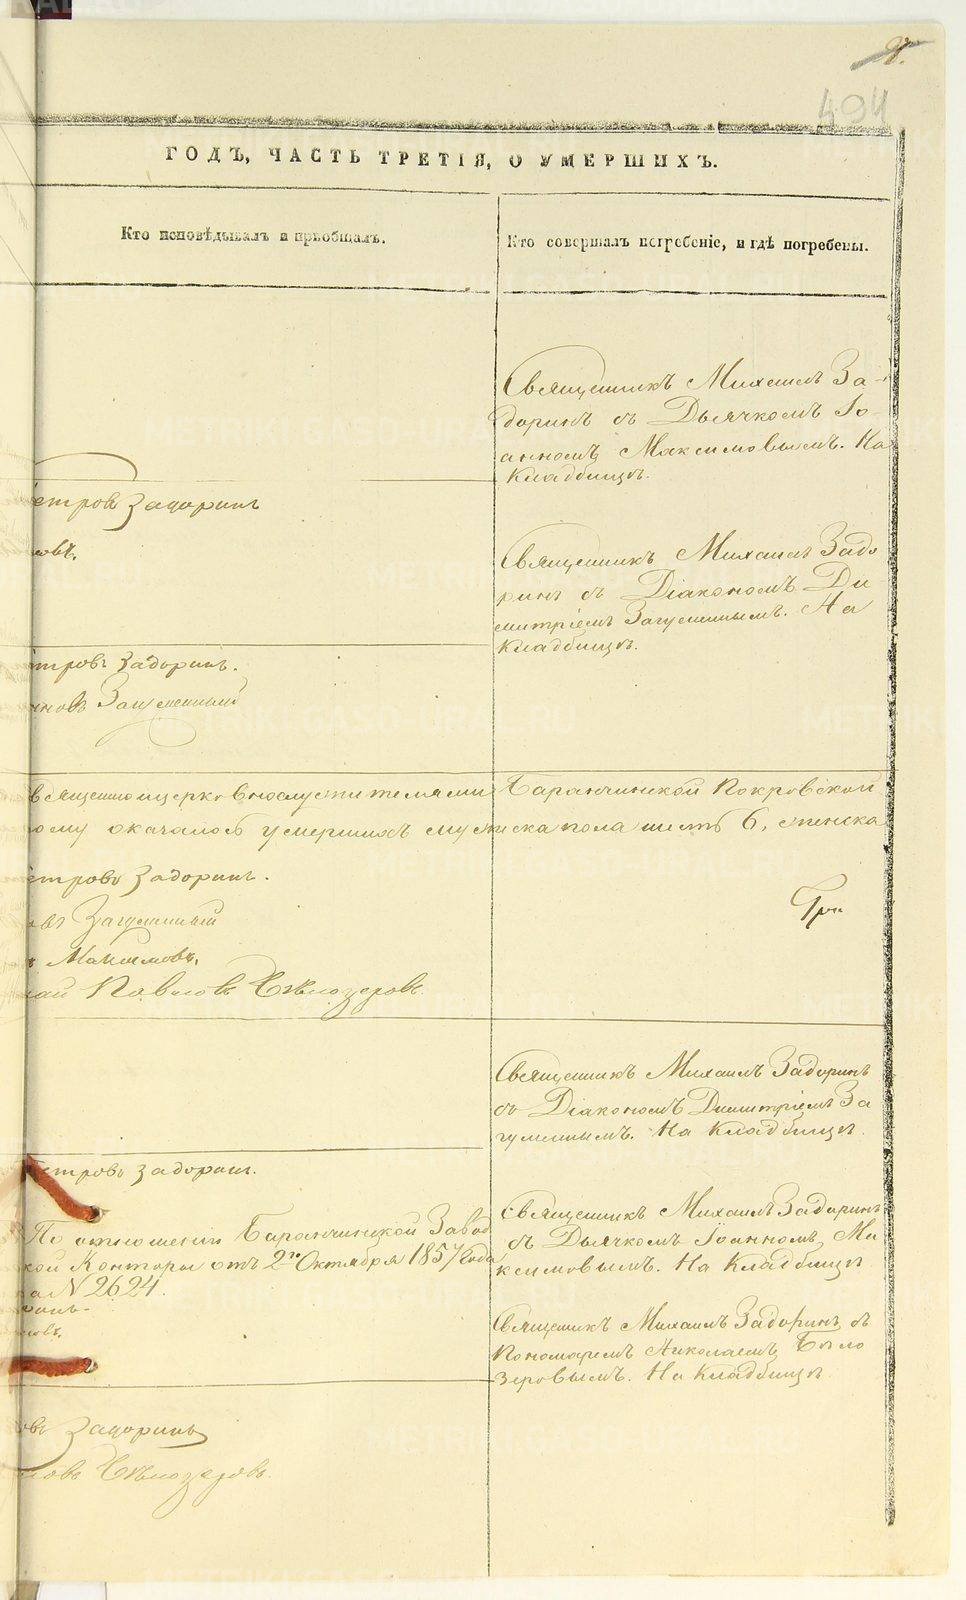 8.
494
ГОДЪ, ЧАСТЬ ТРЕТІЯ, О УМЕРШИХЪ.
Кто исповѣдывалъ и пріобщалъ.
Кто совершалъ погребеніе, и гдѣ погребены.
Священникъ Михаилъ За-
доринъ съ Дьячкомъ Іо-
анномъ Максимовымъ. На
Кладбищѣ.
етровъ Задоринъ
овъ.
Священникъ Михаилъ Задо
ринъ съ Діакономъ Ди
митріемъ Загуменнымъ. На
Кладбищѣ.
тровъ Задоринъ.
новъ Загуменный
священноцерковнослужителями Баранчинской Покровской
ому оказалось умершихъ мужеска пола шесть 6, женска
етровъ Задоринъ.
овъ Загуменный
Три
ъ Максимовъ.
лай Павловъ Бѣлозеровъ.
Священникъ Михаилъ Задоринъ
съ Діакономъ Димитріемъ За
гуменнымъ. На Кладбищѣ.
етровъ Задоринъ.
По отношенію Баранчинской Завод
ской Конторы отъ 2го Октября 1857 года
за N 2624.
ринъ.
овъ.
Священникъ Михаилъ Задоринъ
съ Дьячкомъ Іоанномъ Ма
ксимовымъ. На Кладбищѣ
Священникъ Михаилъ Задоринъ съ
Пономаремъ Николаемъ Бѣло
зеровымъ. На Кладбищѣ
овъ Задоринъ
ловъ Бѣлозеровъ.
METRIKI.GASO-URAL.RU